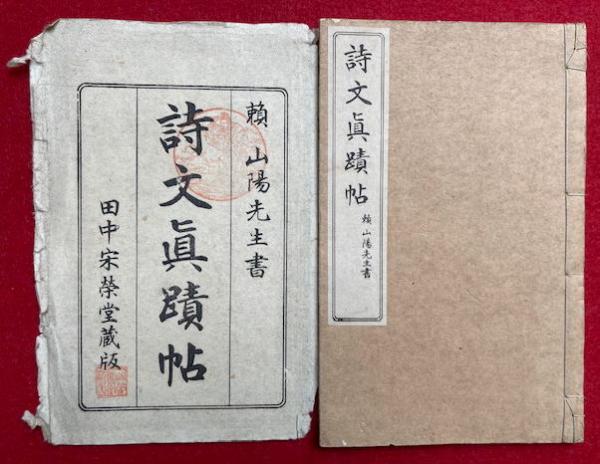 賴山陽先生書
詩文眞蹟帖
田中宋榮堂蔵版
詩文眞蹟帖
賴山陽先生書